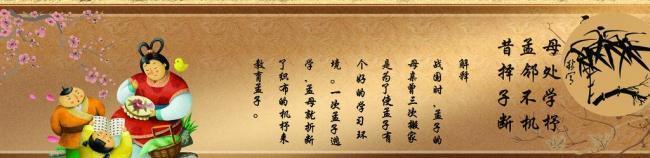 昔孟母
择邻处
子不学
断机杼
解释
战国时,孟子的
母亲曾三次搬家
是为了使孟子有
个好的学习环
境。一次孟子逃
学,孟母就折断
了织布的机杼来
教育孟子。